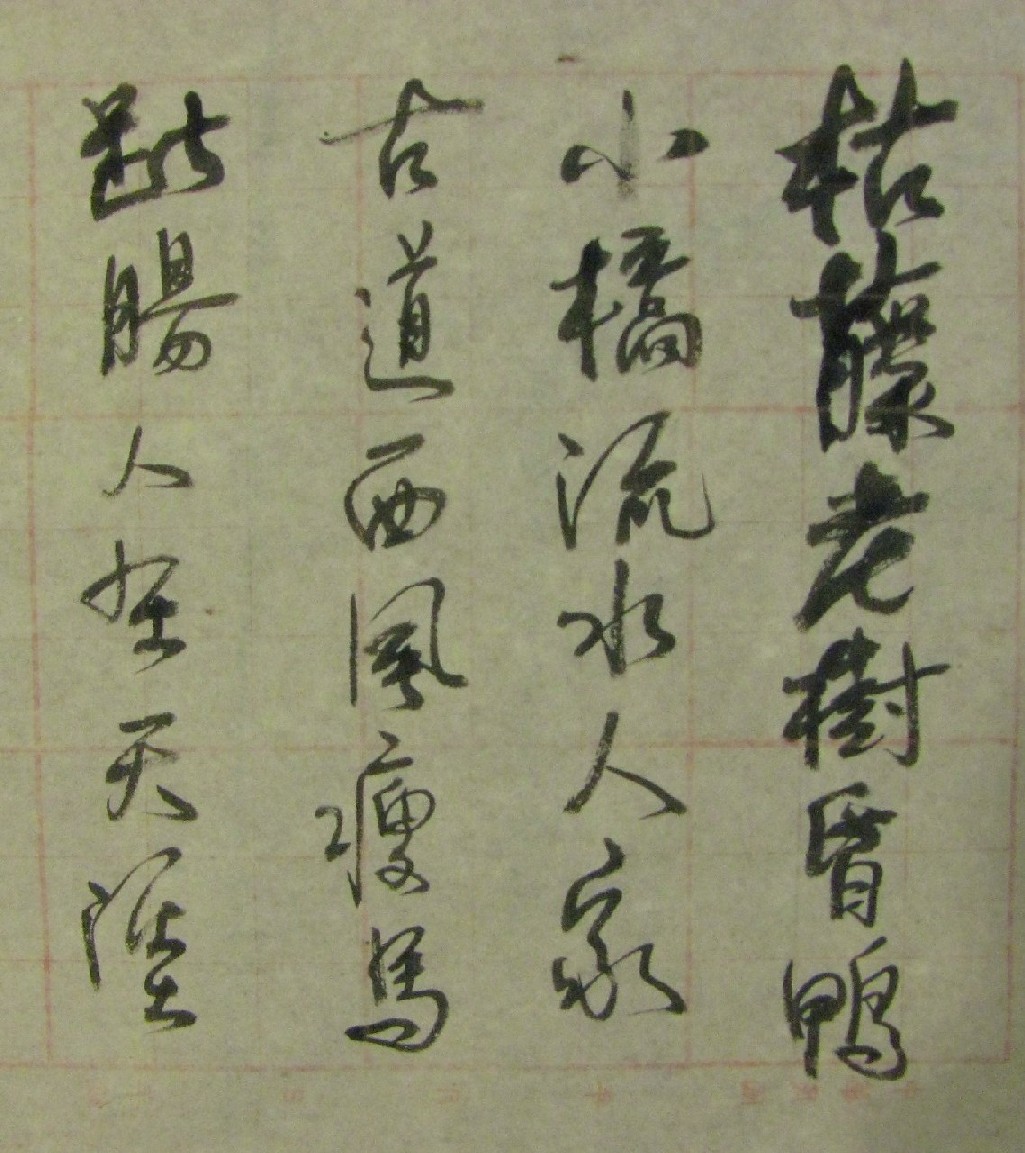 枯藤老樹昏鴨
小橋流水人家
古道西風瘦馬
斷腸人在天涯